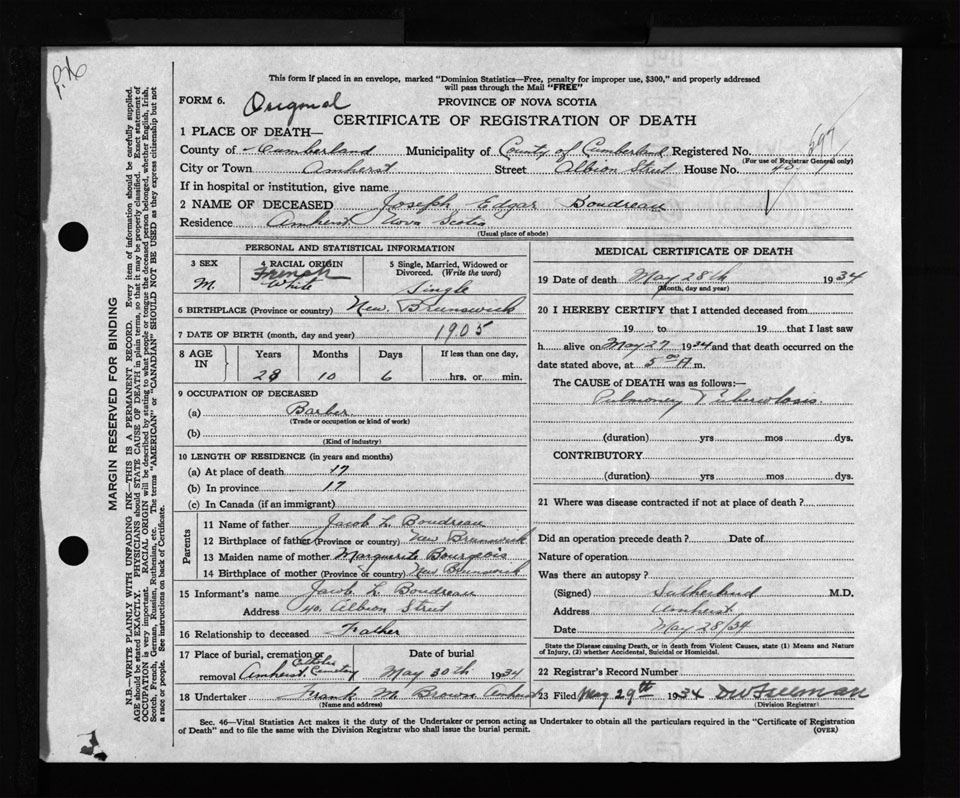 P.X
This form if placed in an envelope, marked "Dominion Statistics—Free, penalty for improper use, $300," and properly addressed
will pass through the Mail "FREE"
FORM 6. Original PROVINCE OF NOVA SCOTIA
CERTIFICATE OF REGISTRATION OF DEATH
1 PLACE OF DEATH—
County of Cumberland Municipality of County of Cumberland Registered No. 697
(For use of Registrar General only)
City or Town Amherst Street Albion Street House No. 40
If in hospital or institution, give name
2 NAME OF DECEASED Joseph Edgar Boudreau
Residence Amherst Nova Scotia
(Usual place of abode)
PERSONAL AND STATISTICAL INFORMATION
3 SEX 4 RACIAL ORIGIN 5 Single, Married, Widowed or
Divorced. (Write the word)
M. French White Single
6 BIRTHPLACE (Province or country) New Brunswick
7 DATE OF BIRTH (month, day and year) 1905
8 AGE IN Years Months Days If less than one day,
28 10 6 hrs. or min.
9 OCCUPATION OF DECEASED
(a) Barber
(Trade or occupation or kind of work)
(b)
(Kind of industry)
10 LENGTH OF RESIDENCE (in years and months)
(a) At place of death 17
(b) In province 17
(c) In Canada (if an immigrant)
Parents
11 Name of father Jacob L Boudreau
12 Birthplace of father (Province or country) New Brunswick
13 Maiden name of mother Marguerite Bourgeois
14 Birthplace of mother (Province or country) New Brunswick
15 Informant's name Jacob L Boudreau
Address 40. Albion Street
16 Relationship to deceased Father
17 Place of burial, cremation or Date of burial
removal Amherst Catholic Cemetery May 30th 1934
18 Undertaker Frank M Brown Amherst
(Name and address)
MEDICAL CERTIFICATE OF DEATH
19 Date of death May 28th 1934
(Month, day and year)
20 I HEREBY CERTIFY that I attended deceased from
19 to 19 that I last saw
h alive on May 27 1934 and that death occurred on the
date stated above, at 5 00 A m.
The CAUSE of DEATH was as follows:—
Pulmonary Tuberculosis
(duration) yrs mos dys.
CONTRIBUTORY
(duration) yrs mos dys.
21 Where was disease contracted if not at place of death?
Did an operation precede death? Date of
Nature of operation
Was there an autopsy?
(Signed) Sutherland M.D.
Address Amherst
Date May 28/34
State the Disease causing Death, or in death from Violent Causes, state (1) Means and Nature
of Injury, (2) whether Accidental, Suicidal or Homicidal.
22 Registrar's Record Number
23 Filed May 29th 1934 DW Freeman
(Division Registrar)
Sec. 46—Vital Statistics Act makes it the duty of the Undertaker or person acting as Undertaker to obtain all the particulars required in the "Certificate of Registration
of Death" and to file the same with the Division Registrar who shall issue the burial permit. (OVER)
MARGIN RESERVED FOR BINDING
N.B.—WRITE PLAINLY WITH UNFADING INK—THIS IS A PERMANENT RECORD. Every item of information should be carefully supplied.
AGE should be stated EXACTLY. PHYSICIANS should STATE CAUSE OF DEATH in plain terms, so that it may be properly classified. Exact statement of
OCCUPATION is very important. RACIAL ORIGIN will be described by stating to what people or tongue the deceased person belonged, whether English, Irish,
Scotch, French, German, Russian, Ruthenian, etc. The terms "AMERICAN" or "CANADIAN" SHOULD NOT BE USED as they express citizenship but not
a race or people. See instructions on back of Certificate.